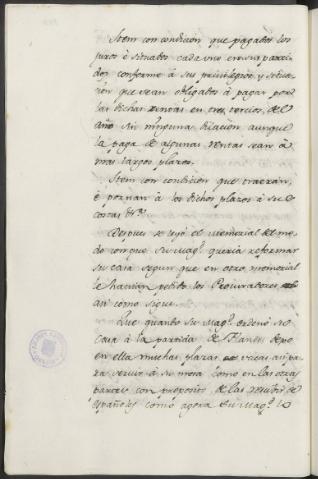 Item con condicion que pagados los
juros è situados cada uno en su parti
do, conforme à sus privilegios, y situa
cion que sean obligados à pagar por
las dichas rentas en tres tercios, del
año sin ninguna dilacion aunque
la paga de algunas rentas sean à
mas largos plazos.
Item con condicion que traeran,
è pornan à los dichos plazos à su
costa
Despues se leyó el memorial del mo
do con que su Mag.d queria reformar
su casa segun que en otro memorial
le havian pedido los Procuradores
asi como sigue.
Que quanto su Mag.d ordenó su
Casa à la partida de Flandes depo
en ella muchas plazas vacas asi pa
ra servir à su mesa como en las otras
partes con proposito de las recibir de
españoles como agora su Mag.d lo